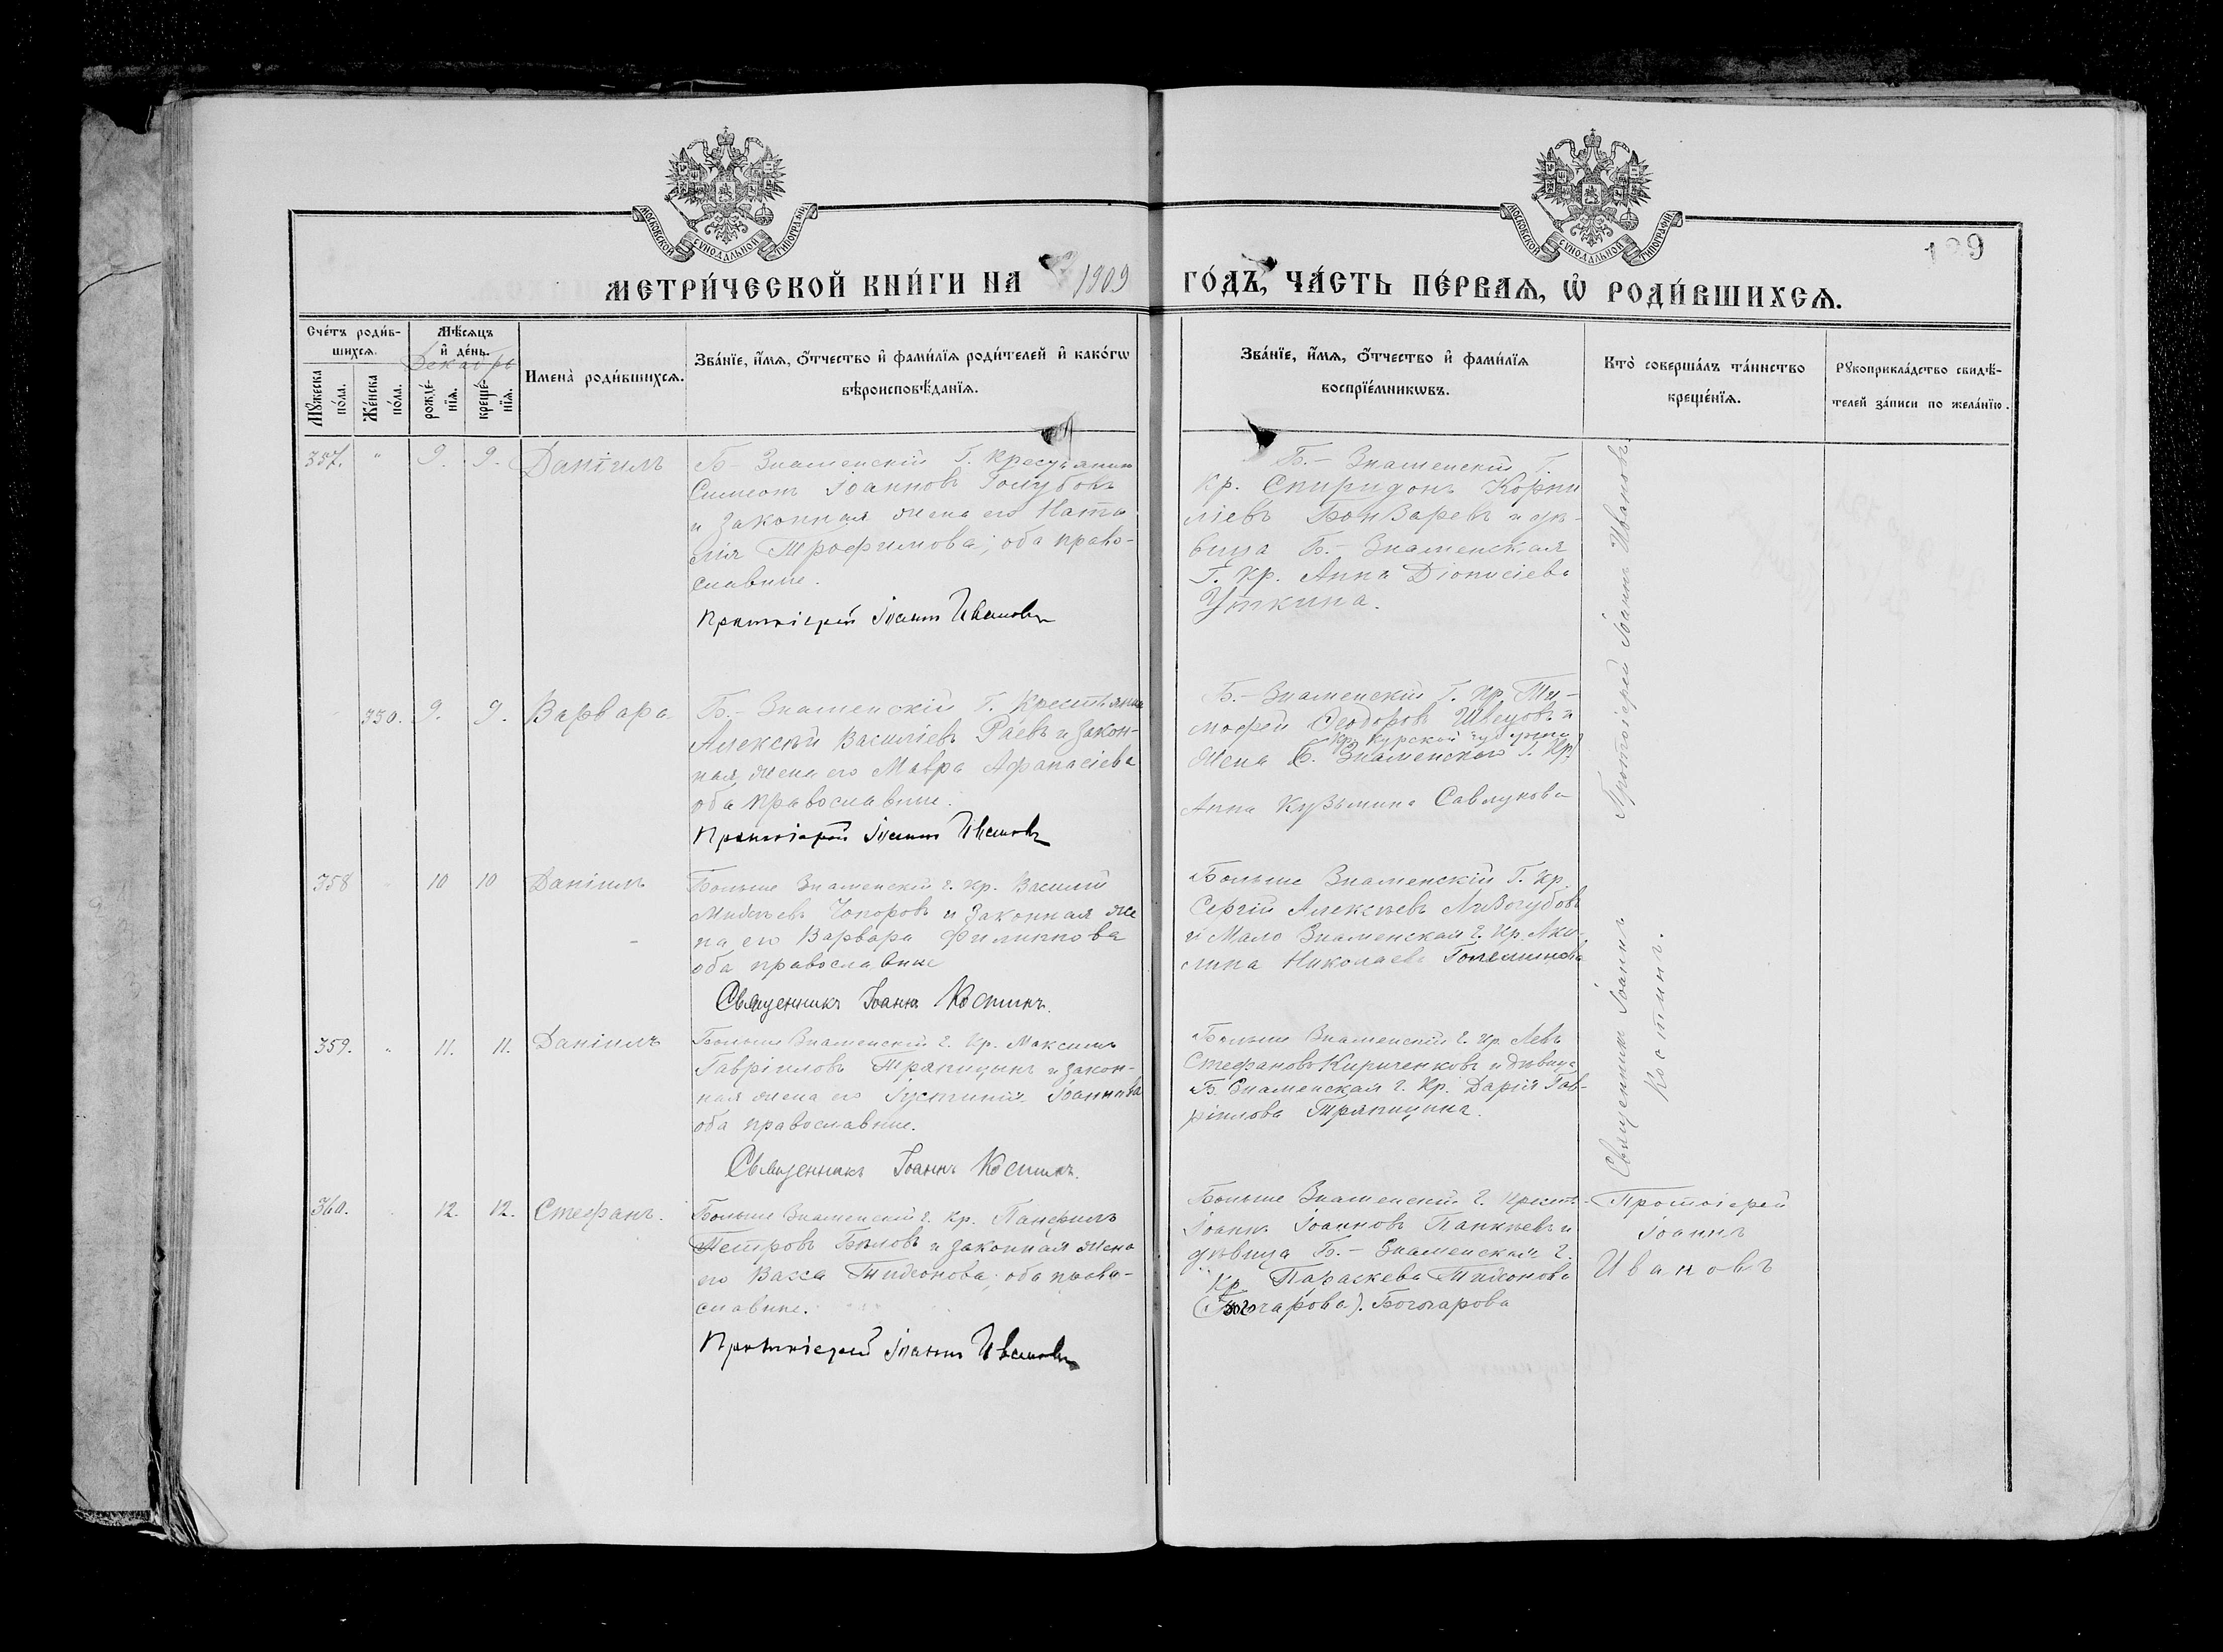 МОСКОВСКОЙ СѴНОДАЛЬНОЙ ТИПОГРАФІИ
МОСКОВСКОЙ СѴНОДАЛЬНОЙ ТИПОГРАФІИ
МЕТРИ́ЧЕСКОЙ КНИ́ГИ НА 1909 ГО́ДЪ, ЧА́СТЬ ПЕ́РВАЯ, Ѿ РОДИ́ВШИХСЯ.
Сче́тъ роди́в-
шихся.
Мѣ́сяцъ
и҆ де́нь.
Декабрь
Мꙋ́жеска
по́ла.
Же́нска
по́ла.
рожде́-
нїѧ.
креще́-
нїѧ.
Имена̀ роди́вшихся.
Зва́нїе, и҆́мѧ, ѻ҆́тчество и҆ фами́лїѧ роди́телей и҆ како́гѡ
вѣроисповѣ́данїѧ.
Зва́нїе, и҆́мѧ, ѻ҆́тчество и҆ фами́лїѧ
воспрїе́мникѡвъ.
Кто̀ соверша́лъ та́инство
креще́нїѧ.
Рꙋкоприкла́дство свидѣ́-
телей за́писи по жела́нїю.
357. " 9. 9. Даніилъ
Б.- Знаменскій Г. Крестьянинъ
Симеонъ Іоанновъ Голубовъ
и законная жена его Ната
лія Трофимова; оба право-
славные.
Протоіерей Іоаннъ Ивановъ
Б.- Знаменскій Г.
Кр. Спиридонъ Корни
ліевъ Бонзаревъ и дѣ-
вица Б.- Знаменская
Г. Кр. Анна Діонисіева
Уткина.
Протоіерей Іоаннъ Ивановъ
330. 9. 9. Варвара
Б.- Знаменскій Г. Крестьянинъ
Алексѣй Василіевъ Раевъ и закон-
ная жена его Мавра Аѳанасіева
оба православные.
Протоіерей Іоаннъ Ивановъ
Б.- Знаменскій Г. Кр. Ти-
моѳей Ѳеодоровъ Швецовъ и
Кр. Курской губерніи
жена Б. Знаменскаго Г. Кр.
Анна Кузьмина Савлукова
358 10 10 Даніилъ
Больше Знаменскій г. Кр. Василій
Чопоровъ и законная же
на его Варвара Филиппова
оба православные
Священникъ Іоаннъ Костинъ.
Больше Знаменскій Г. Кр.
Сергій Алексѣевъ Лизогубовъ
и Мало Знаменская г. Кр. Аку-
лина Николаева
Священникъ Іоаннъ
Костинъ.
359. " 11. 11. Даніилъ
Больше Знаменскій г. Кр. Максимъ
Гавріиловъ Тряпицынъ и закон-
ная жена его Іустинія Іоаннова
оба православные.
Священникъ Іоаннъ Костинъ.
Больше Знаменскій г. Кр. Левъ
Стефановъ Кириченковъ и дѣвица
Б. Знаменская г. Кр. Дарія Гав-
ріилова Тряпицына.
360. 12. 12. Стефанъ.
Больше Знаменскій г. Кр. Панфилъ
Петровъ Бѣловъ и законная жена
его Васса Тихонова; оба право-
славные.
Протоіерей Іоаннъ Ивановъ
Больше Знаменскій г. Крест.
Іоаннъ Іоанновъ Панкѣевъ и
дѣвица Б.- Знаменская г.
Кр. Параскева Тихонова
Богогарова
Протоіерей
Іоаннъ
Ивановъ